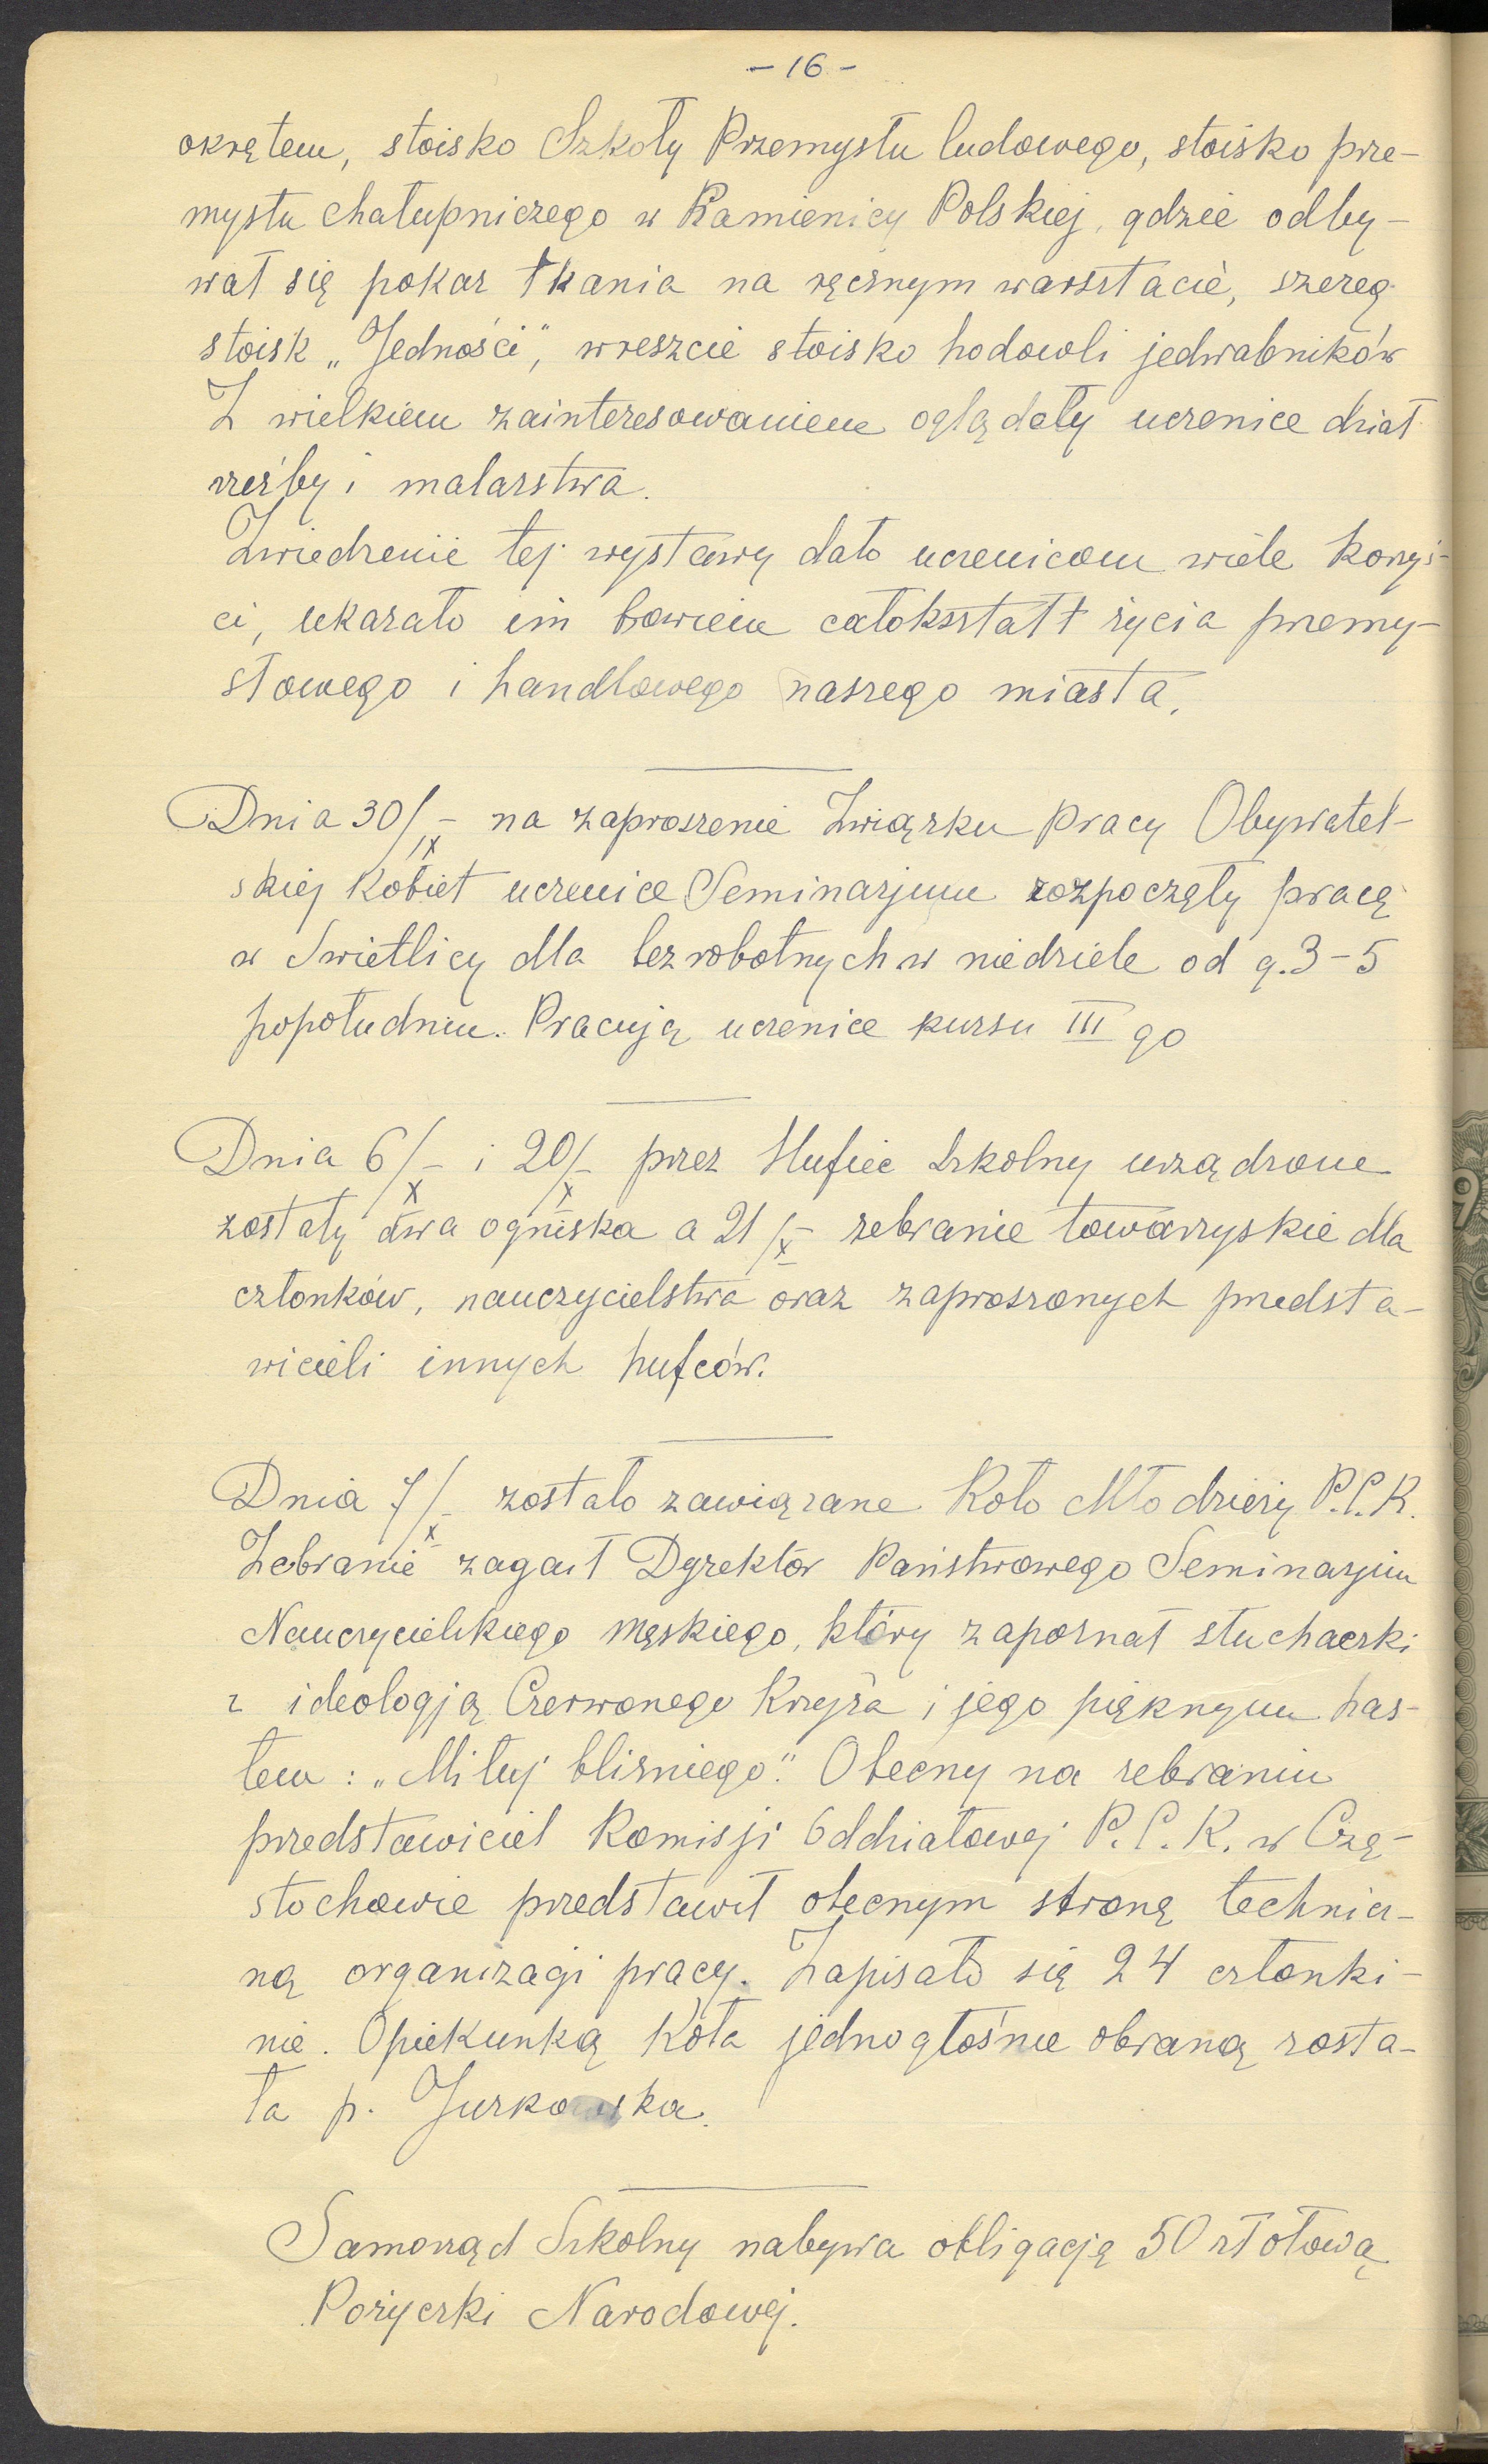 - 16 -
okrętem, stoisko Szkoły Przemysłu ludowego, stoisko prze-
mysłu chałupniczego w Kamienicy Polskiej, gdzie odby-
wał się pokaz tkania na ręcznym warsztacie, szereg
stoisk „Jedności", wreszcie stoisko hodowli jedwabników
Z wielkiem zainteresowaniem oglądały uczenice dział
rzeźby i malarstwa.
Zwiedzenie tej wystawy dało uczenicom wiele korzyś-
ci, ukazało im bowiem całokształt życia przemy-
słowego i handlowego naszego miasta.
Dnia 30/IX - na zaproszenie Związku Pracy Obywatel-
skiej Kobiet uczenice Seminarjum rozpoczęły pracę
w Swietlicy dla bezrobotnych w niedziele od g. 3-5
popołudniu. Pracują uczenice kursu III go
Dnia 6/X - i 20/X - przez Hufiec Szkolny urządzone
zostały dwa ogniska a 21/X - zebranie towarzyskie dla
członków, nauczycielstwa oraz zaproszonych przedsta-
wicieli innych hufców.
Dnia 7/X - zostało zawiązane Koło Młodzieży P.C.K.
Zebranie zagaił Dyrektor Państwowego Seminarjum
Nauczycielskiego męskiego, który zapoznał słuchaczki
z ideologją Czerwonego Krzyża i jego pięknym has-
łem: „Miłuj bliźniego". Obecny na zebraniu
przedstawiciel Komisji Oddziałowej P.C.K. w Czę-
stochowie przedstawił obecnym stronę technicz-
ną organizacji pracy. Zapisało się 24 członki-
nie. Opiekunką Koła jednogłośnie obraną zosta-
ła p. Jurkowska.
Samorząd Szkolny nabywa obligację 50 złotową
Pożyczki Narodowej.